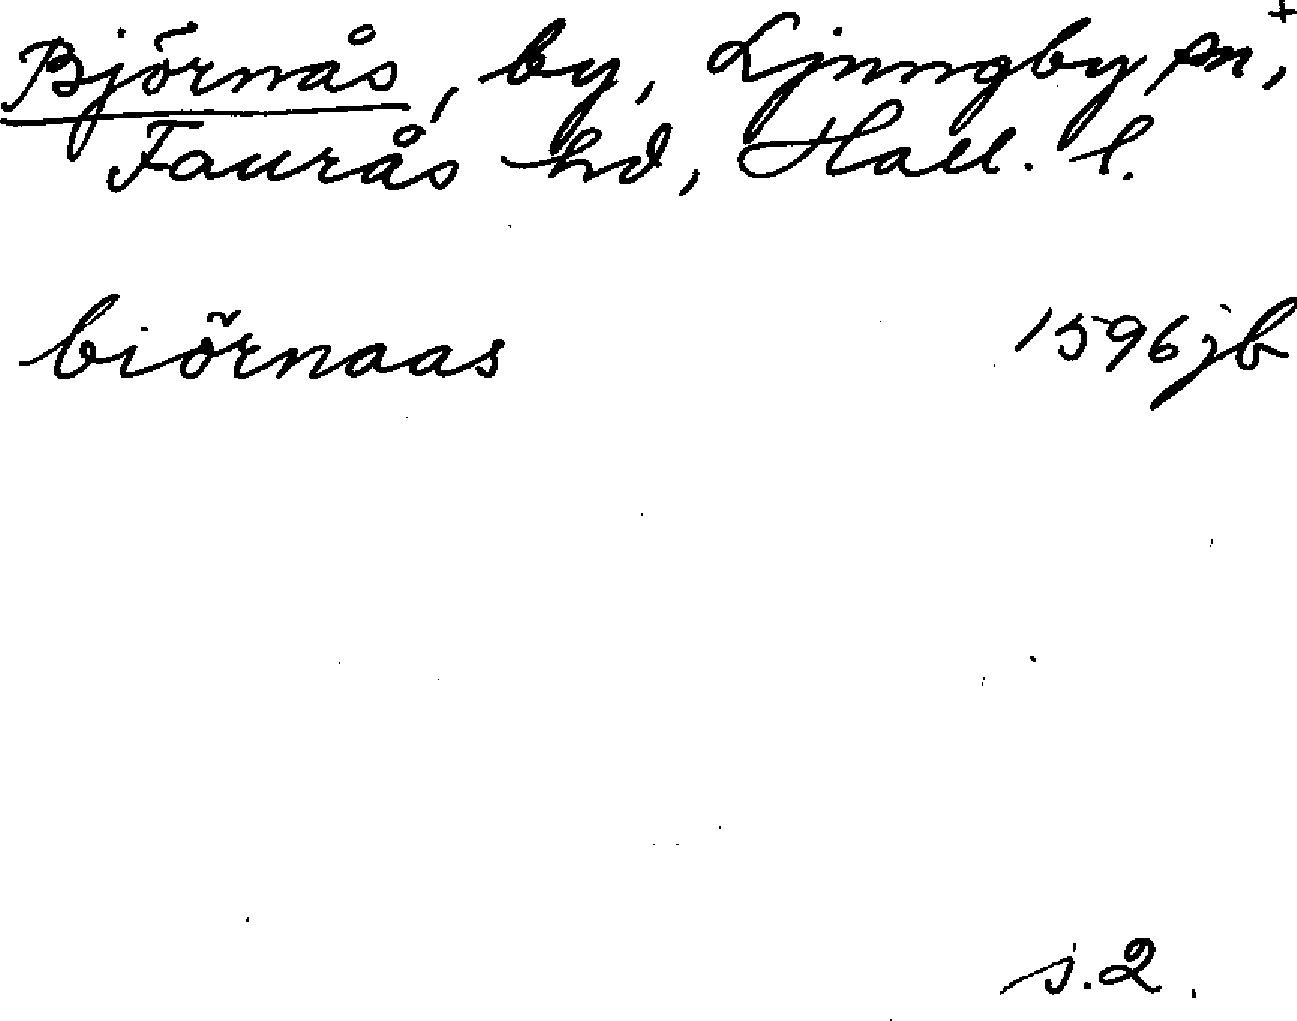 Björnås, by, Ljungby sn, +
Faurås hd, Hall. l.
biörnaas 1596 jb
s. 2.